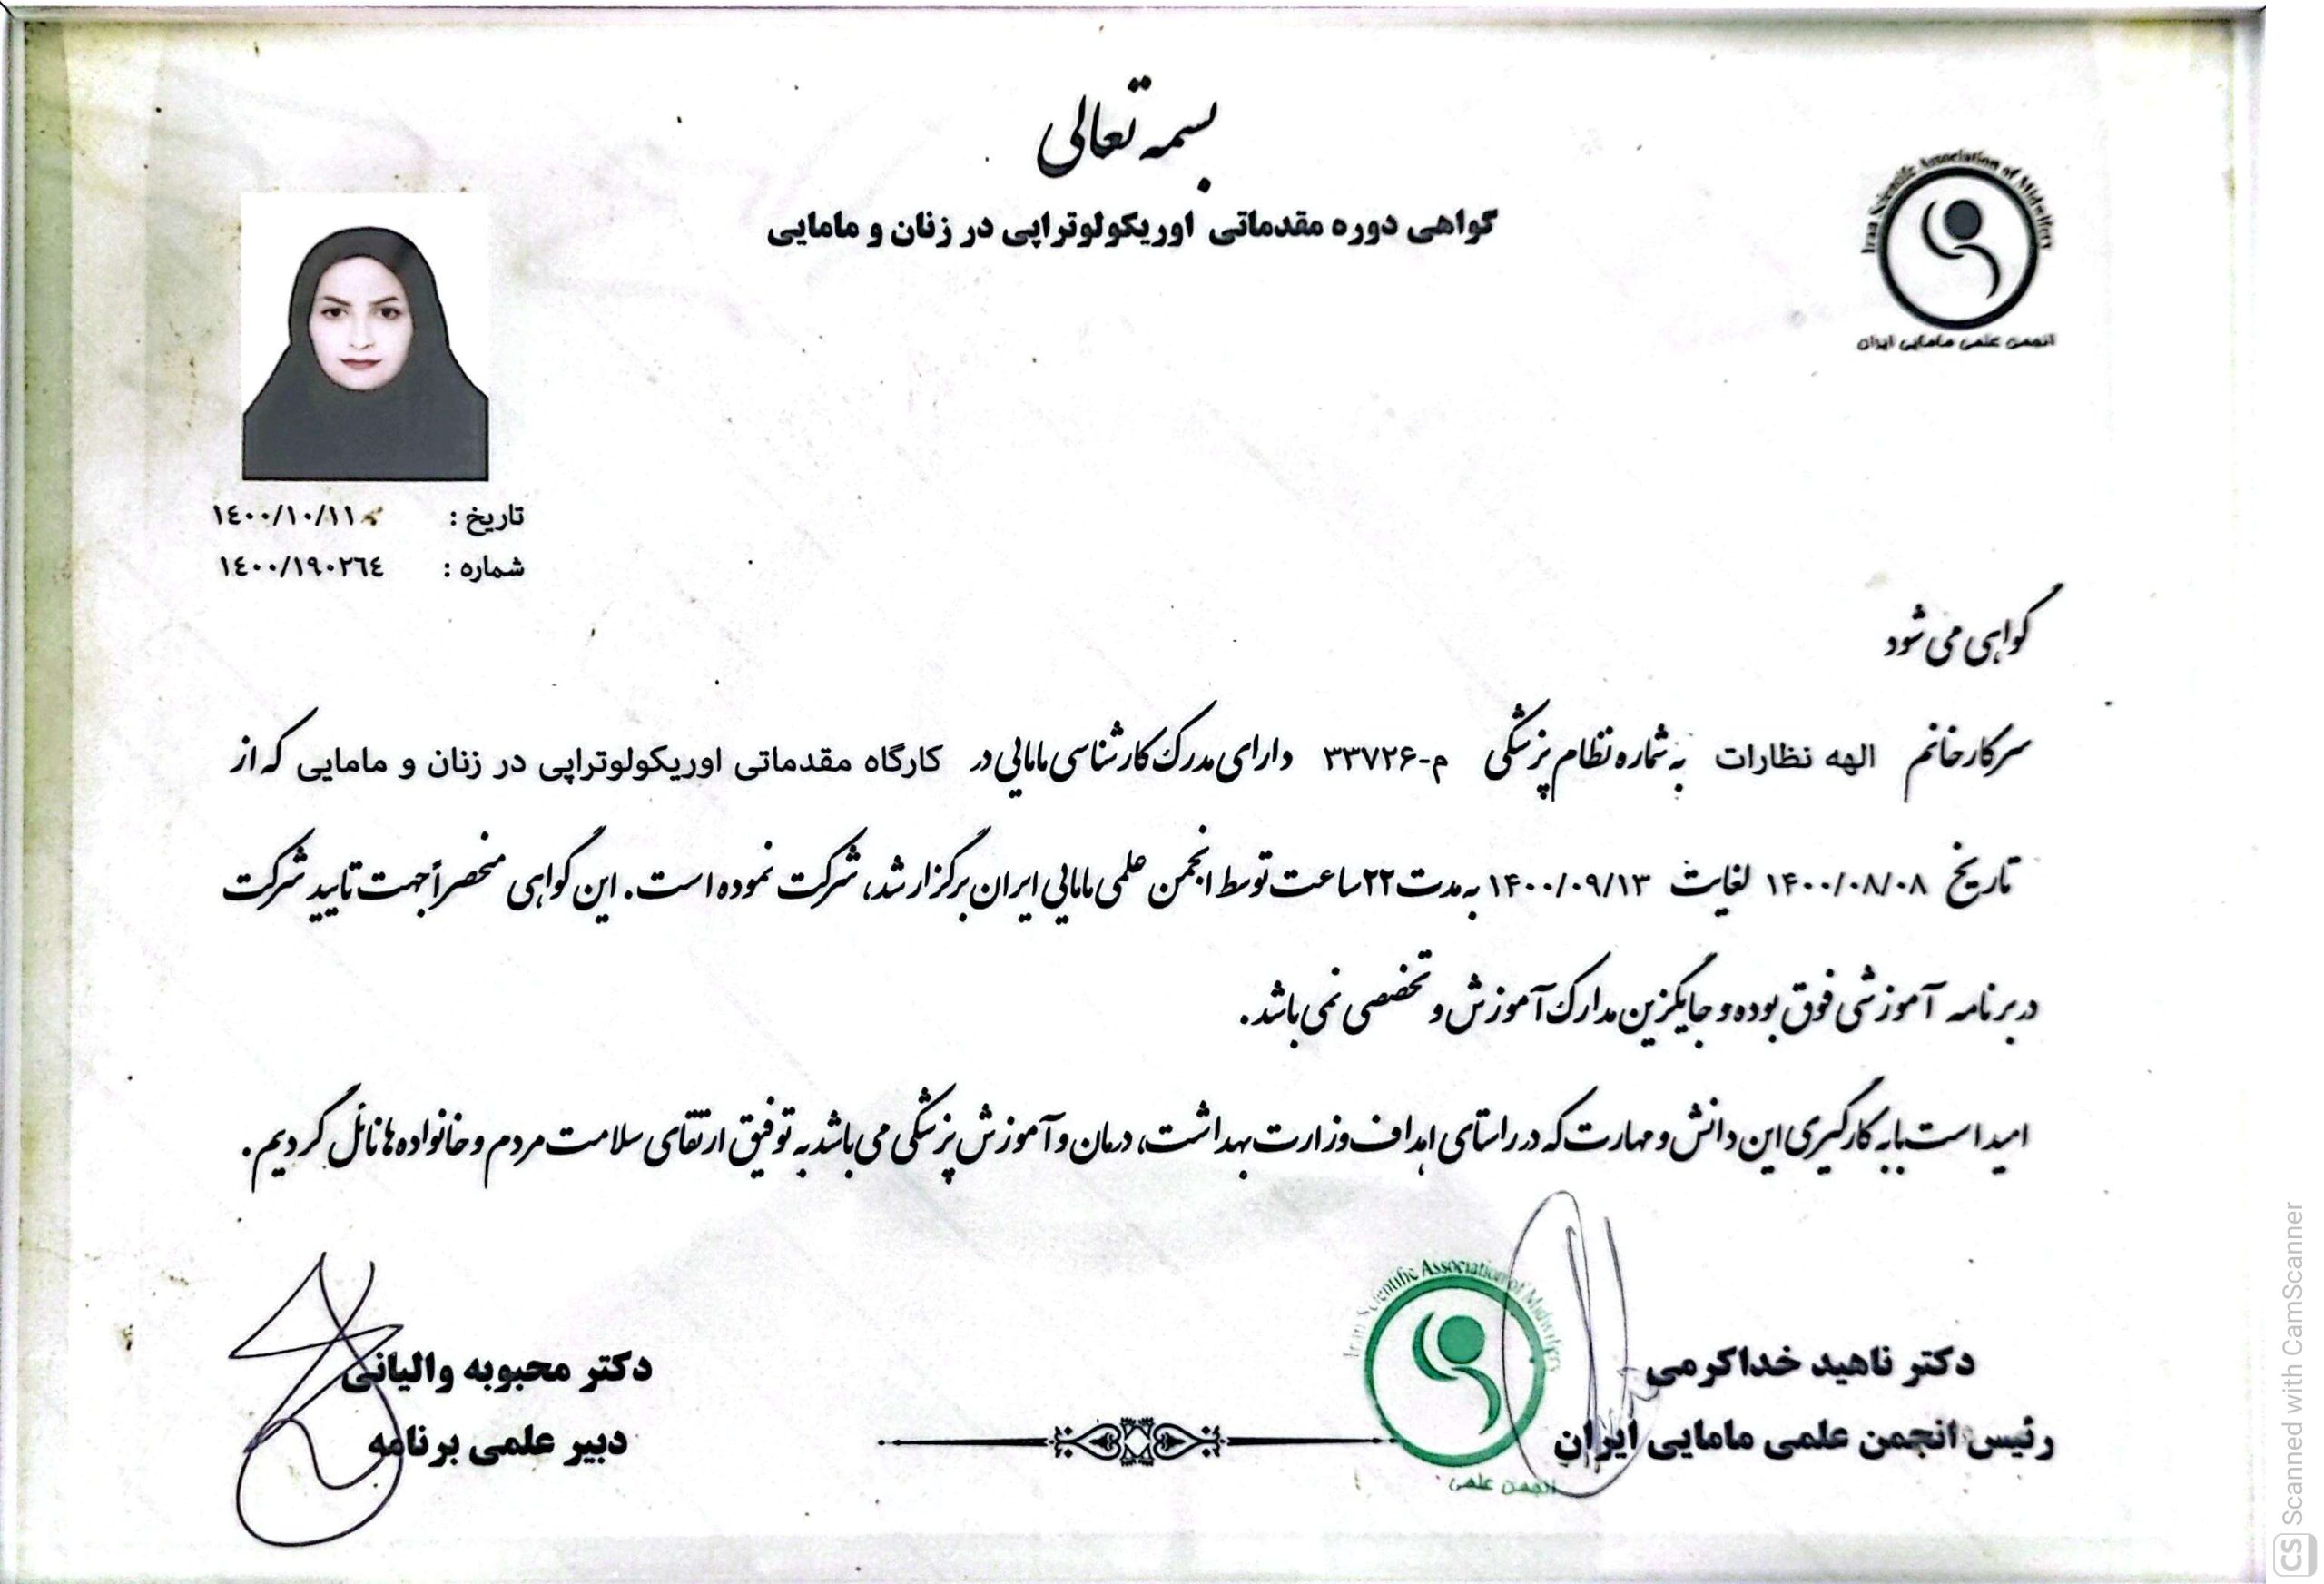 بسمه تعالی
Iran Scientific Association of Midwifery
انجمن علمی مامایی ایران
گواهی دوره مقدماتی اوریکولوتراپی در زنان و مامایی
تاریخ : ١٤٠٠/١٠/١١
شماره : ١٤٠٠/١٩٠٢٦٤
گواهی می شود
سرکار خانم الهه نظارات به شماره نظام پزشکی م-۳۳۷۲۶ دارای مدرک کارشناسی مامایی در کارگاه مقدماتی اوریکولوتراپی در زنان و مامایی که از
تاریخ ۱۴۰۰/۰۸/۰۸ لغایت ۱۴۰۰/۰۹/۱۳ به مدت ۲۲ ساعت توسط انجمن علمی مامایی ایران برگزار شد، شرکت نموده است. این گواهی منحصراً جهت تایید شرکت
در برنامه آموزشی فوق بوده و جایگزین مدارک آموزش و تخصصی نمی باشد.
امید است با به کارگیری این دانش و مهارت که در راستای اهداف وزارت بهداشت، درمان و آموزش پزشکی می باشد به توفیق ارتقای سلامت مردم و خانواده ها نائل گردیم.
Iran Scientific Association of Midwifery
انجمن علمی
دکتر ناهید خداکرمی
رئیس انجمن علمی مامایی ایران
دکتر محبوبه والیانی
دبیر علمی برنامه
CS Scanned with CamScanner